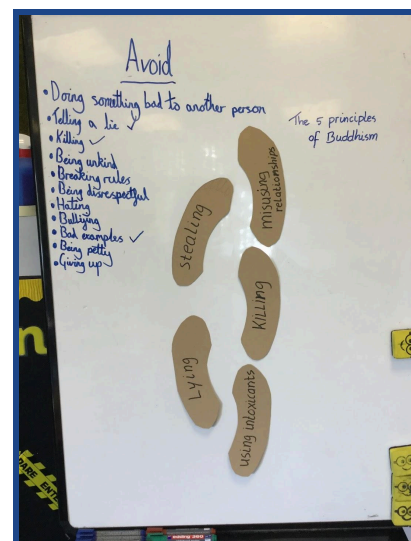 Avoid
• Doing something bad to another person
• Telling a lie ✓
• Killing ✓
• Being unkind
• Breaking rules
• Being disrespectful
• Hating
• Bullying
• Bad examples ✓
• Being petty
• Giving up
The 5 principles
of Buddhism
misusing
relationships
stealing
Killing
Lying
using intoxicants